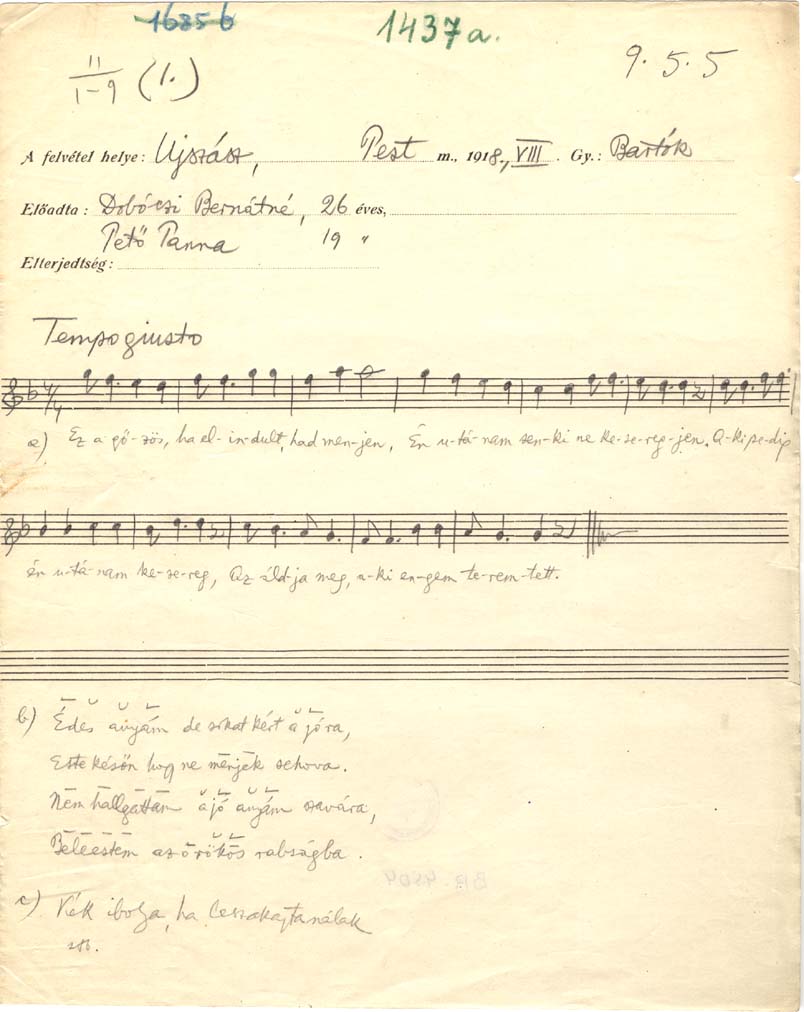 16856
1437a.
11
1-9 (1.)
9. 5. 5
A felvétel helye: Ujszász, Pest m., 1918., VIII. Gy.: Bartók
Előadta: Dobóczi Bernátné, 26 éves,
Pető Panna 19 "
Elterjedtség:
Tempo giusto
4/4
a) Ez a gő-zös, ha el-in-dult, had men-jen, Én u-tá-nam sen-ki ne ke-se-reg-jen. A-ki pe-dig
én u-tá-nam ke-se-reg, Az áld-ja meg, a-ki en-gem te-rem-tett.
b) Édes anyám de sokat kért a jóra,
Este későn hogy ne menjek sehova.
Nem hallgattam a jó anyám szavára,
Beleestem az örökös rabságba.
c) Kék ibolya, ha leszakajtanálak
stb.
BR. 4504